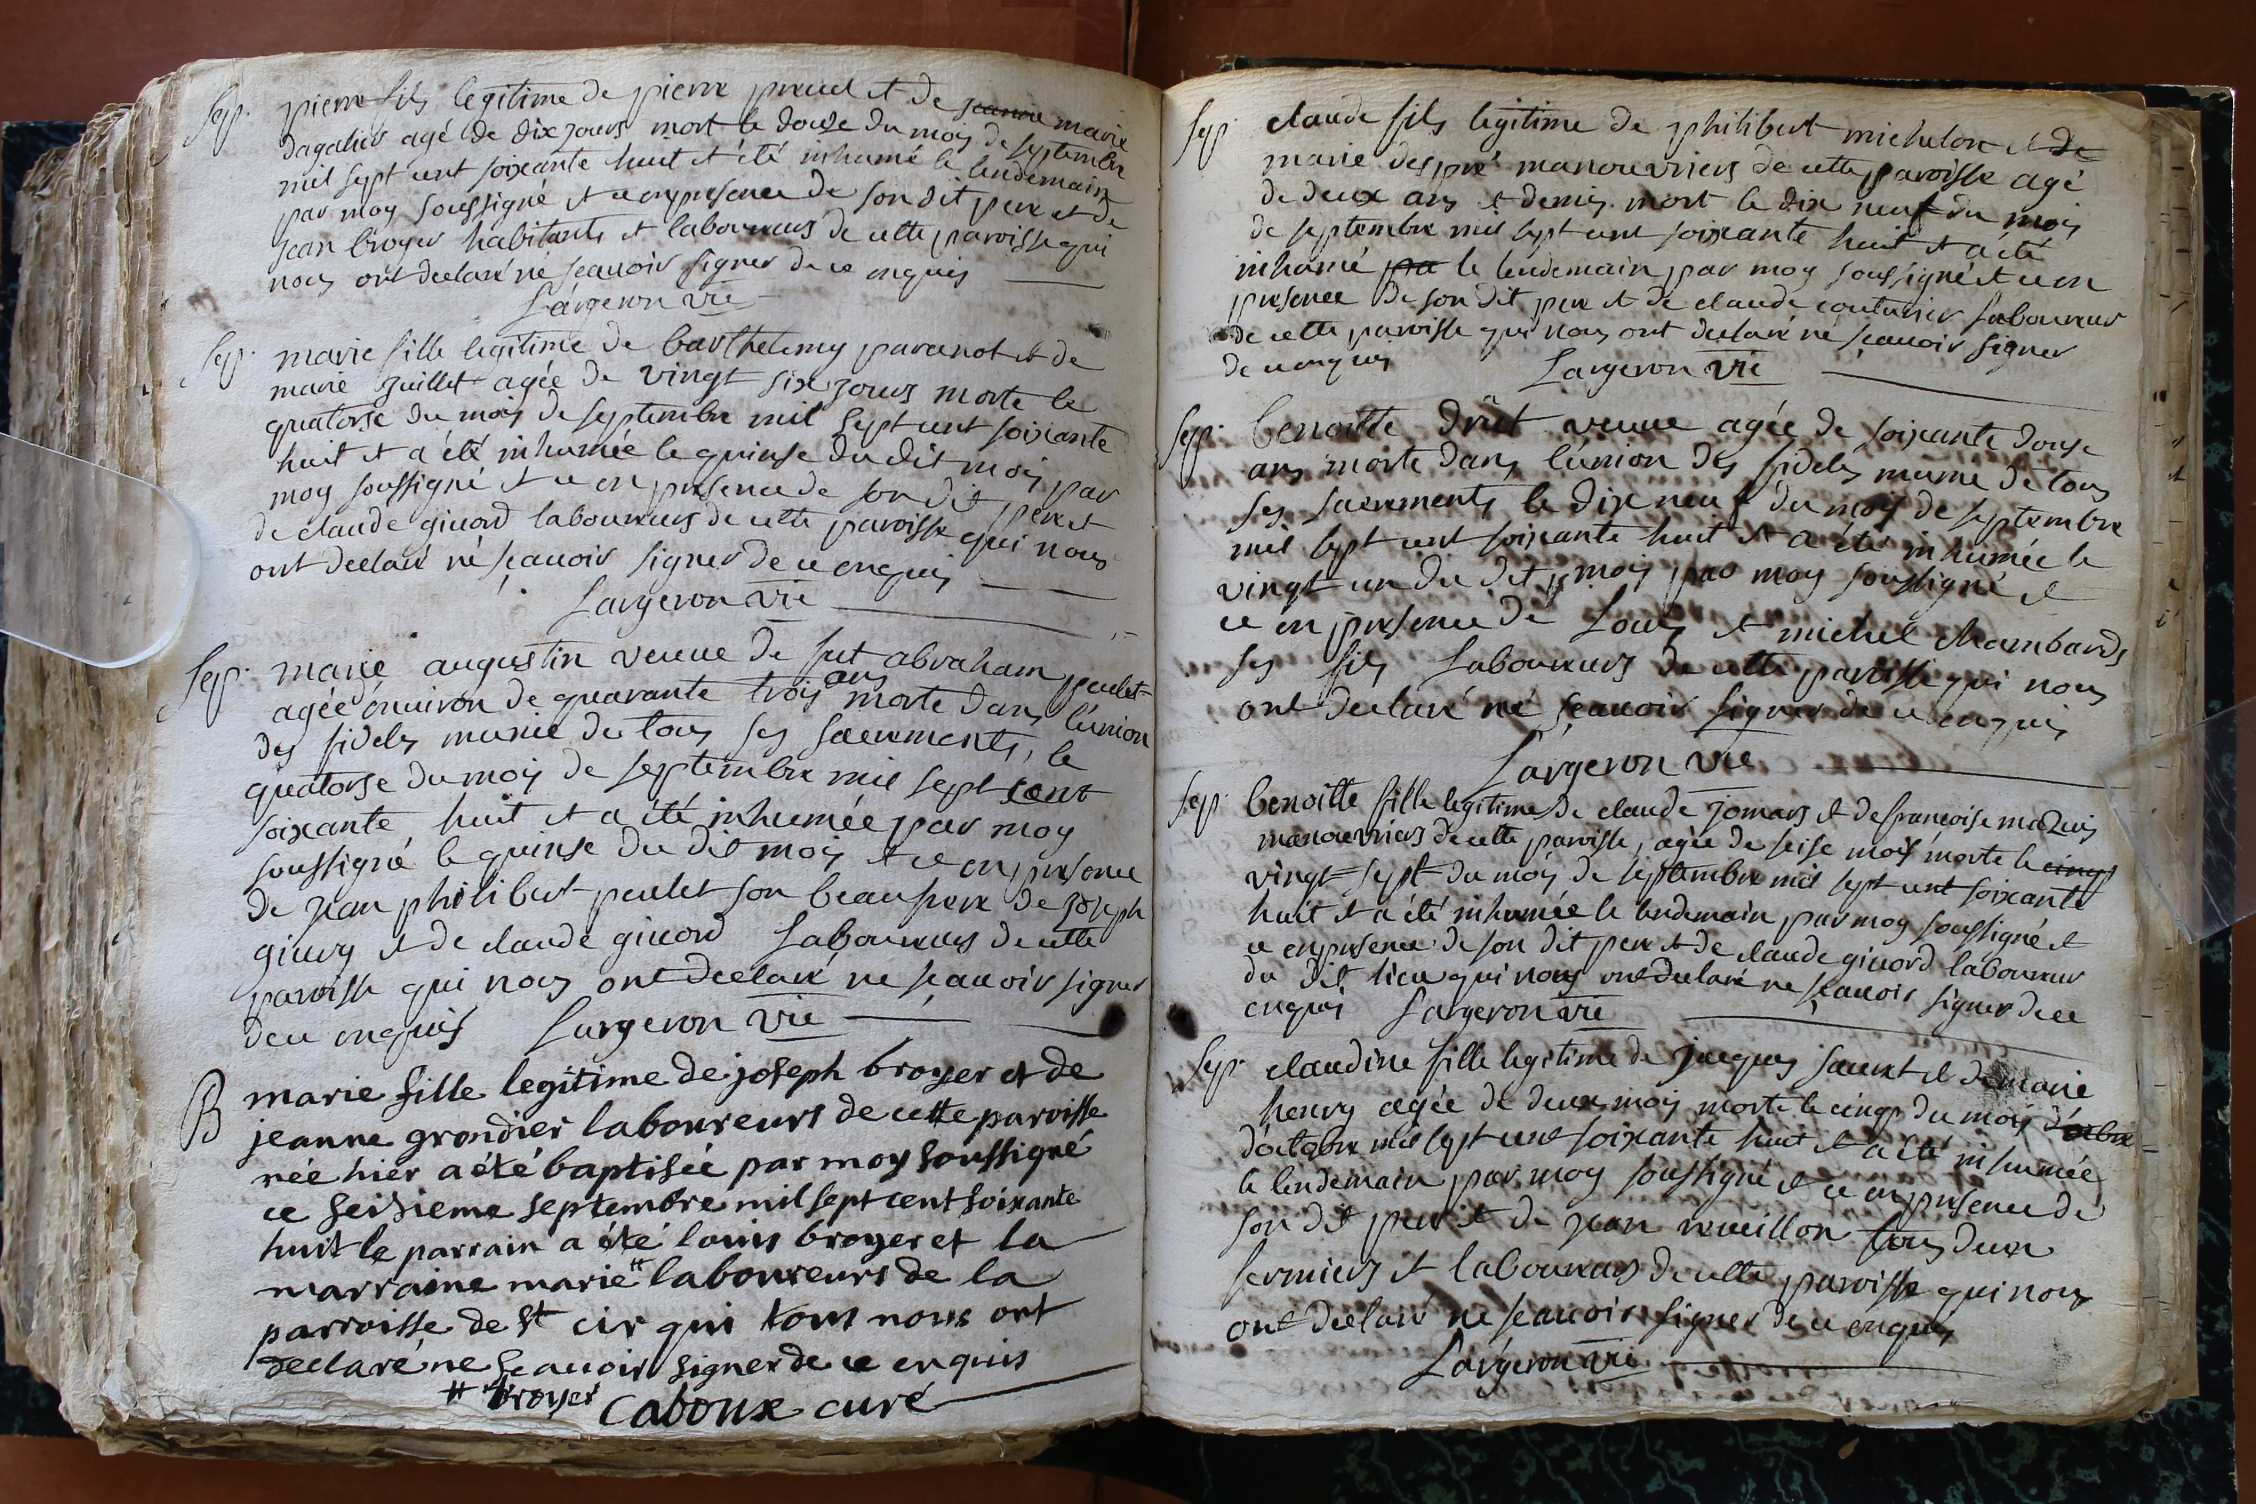 Sep. pierre fils legitime de pierre preud et de jeanne marie
dagalier agé de dix jours mort le douze du mois de septembre
mil sept cent soixante huit et été inhumé le lendemain
par moy soussigné et ce en presence de son dit pere et de
jean broyer habitants et laboureurs de cette paroisse qui
nous ont declaré né sçauoir signer de ce enquis
Largeron vic
Sep. marie fille legitime de barthelemy parcenot et de
marie juillet agée de vingt six jours morte le
quatorse du mois de septembre mil sept cent soixante
huit et a été inhumée le quinse du dit mois par
moy soussigné et ce en presence de son dit pere et
de claude giuord laboureurs de cette paroisse qui nous
ont declaré né sçauoir signer de ce enquis
Largeron vic
Sep. marie augustin veuue de fut abraham peulet
agée d'enuiron de quarante trois ans morte dans l'union
des fideles munie de tous ses sacrements, le
quatorse du mois de septembre mil sept cent
soixante huit et a été inhumée par moy
soussigné le quinse du dit mois et ce en presence
de jean philibert peulet son beaupere de joseph
giury et de claude giuord Laboureurs de cette
paroisse qui nous ont declaré ne sçauoir signer
de ce enquis Largeron vic
B marie fille legitime de joseph broyer et de
jeanne grondier laboureurs de cette paroisse
née hier a été baptisée par moy soussigné
ce seizieme septembre mil sept cent soixante
huit le parrain a été louis broyer et la
marraine marie # laboureurs de la
parroisse de St cir qui tous nous ont
declaré ne sçauoir signer de ce enquis
# broyer Caboux curé
Sep. claude fils legitime de philibert michelon et de
marie des pré manouvriers de cette paroisse agé
de deux ans et demis mort le dix neuf du mois
de septembre mil sept cent soixante huit et a été
inhumé pa le lendemain par moy soussigné et ce en
presence de son dit pere et de claude couturier laboureur
de cette paroisse qui nous ont declaré né sçauoir signer
de ce enquis Largeron vic
Sep. benoitte drut veuue agée de soixante douse
ans morte dans l'union des fideles munie de tous
ses sacrements le dix neuf du mois de septembre
mil sept cent soixante huit et a été inhumée le
vingt un du dit mois par moy soussigné et
ce en presence de Louis et michel chambard
ses fils Laboureurs de cette paroisse qui nous
ont declaré né sçauoir signer de ce enquis
Largeron vic
Sep. benoitte fille legitime de claude jomars et de francoise mazuis
manouvriers de cette paroisse, agée de seise mois morte le cinq
vingt-sept du mois de septembre mil sept cent soixante
huit et a été inhumée le lendemain par moy soussigné et
ce en presence de son dit pere et de claude giuord laboureur
du dit lieu qui nous ont declaré ne sçauoir signer de ce
enquis Largeron vic
Sep. claudine fille legitime de jacques sauret et de marie
henry agée de deux mois morte le cinq du mois d'oc
d'octobre mil sept cent soixante huit et a été inhumée
le lendemain par moy soussigné et ce en presence de
son dit pere et de jean reueillon tous deux
fermiers et laboureurs de cette paroisse qui nous
ont declaré ne sçauoir signer de ce enquis
Largeron vic